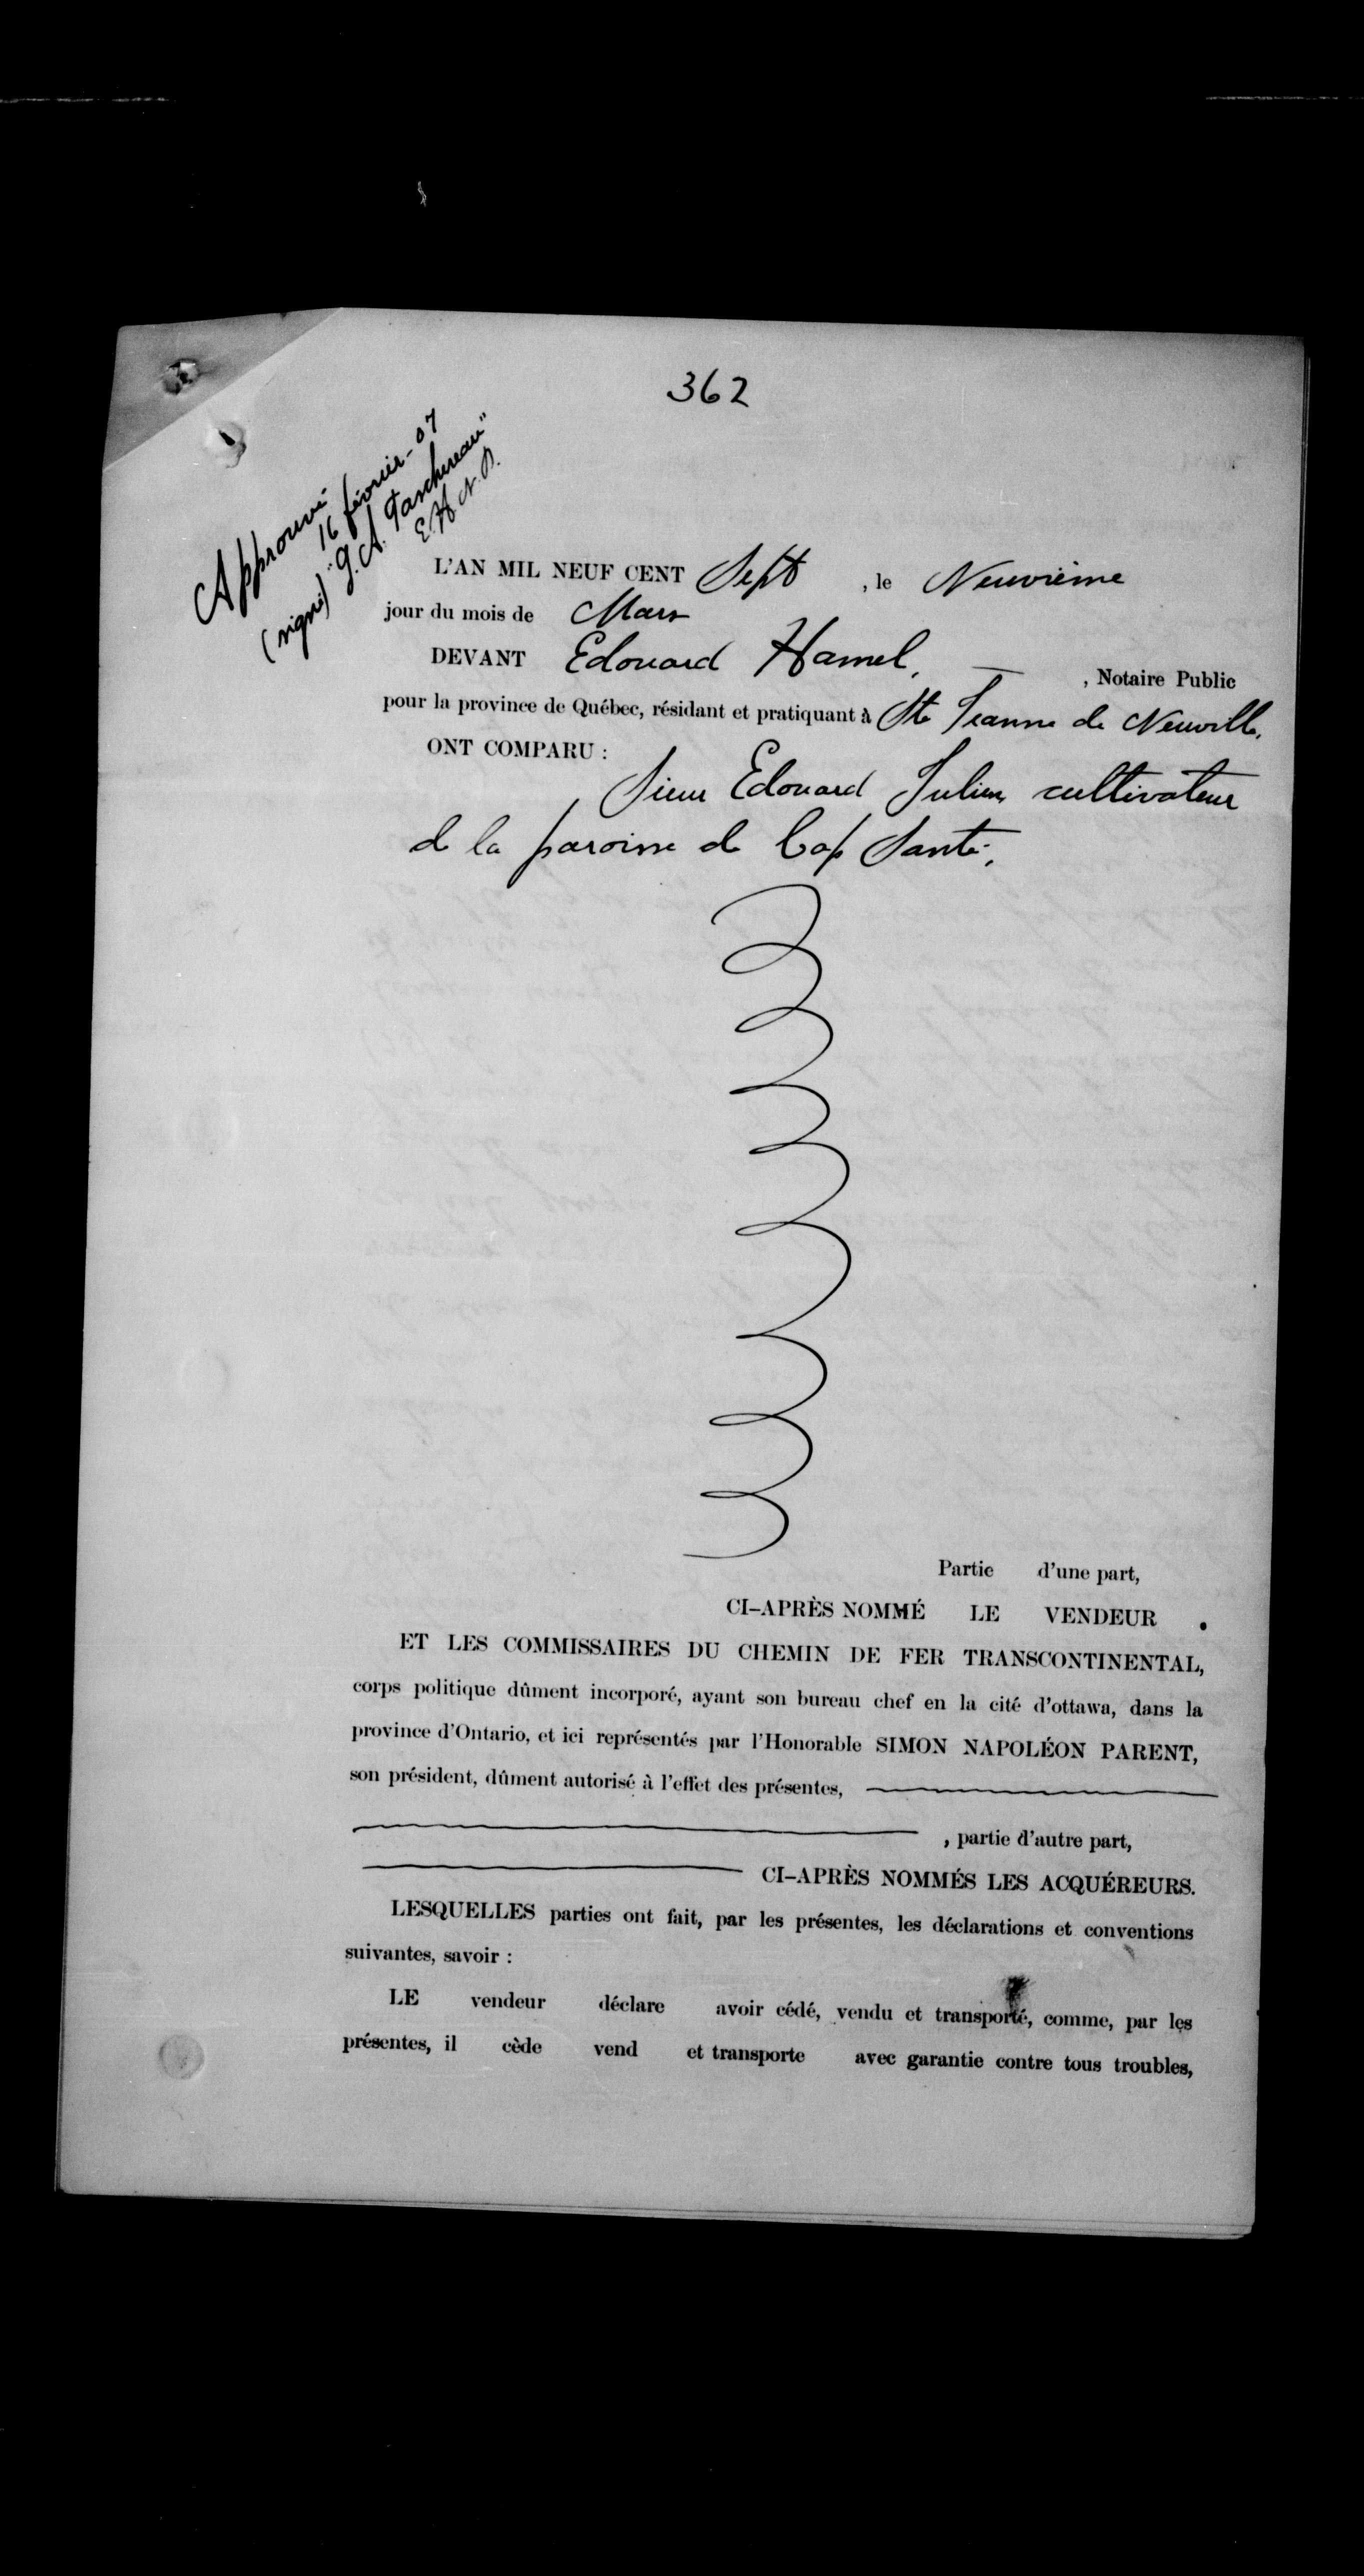 362
Approuvé
16 février-07
(signé) "G. A. Taschereau"
E.H N.P.
L'AN MIL NEUF CENT Sept , le Neuvième
jour du mois de Mars
DEVANT Edouard Hamel, , Notaire Public
pour la province de Québec, résidant et pratiquant à Ste Jeanne de Neuville.
ONT COMPARU :
Sieur Edouard Julien, cultivateur
de la paroisse de Cap Santé,
Partie d'une part,
CI-APRÈS NOMMÉ LE VENDEUR .
ET LES COMMISSAIRES DU CHEMIN DE FER TRANSCONTINENTAL,
corps politique dûment incorporé, ayant son bureau chef en la cité d'ottawa, dans la
province d'Ontario, et ici représentés par l'Honorable SIMON NAPOLÉON PARENT,
son président, dûment autorisé à l'effet des présentes,
, partie d'autre part,
CI-APRÈS NOMMÉS LES ACQUÉREURS.
LESQUELLES parties ont fait, par les présentes, les déclarations et conventions
suivantes, savoir :
LE vendeur déclare avoir cédé, vendu et transporté, comme, par les
présentes, il cède vend et transporte avec garantie contre tous troubles,